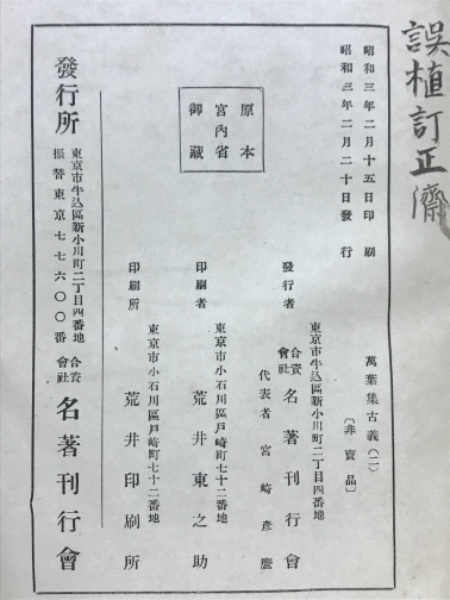 誤植訂正濟
昭和三年二月十五日印刷
昭和三年二月二十日發行
萬葉集古義（二）
〔非賣品〕
原本
宮內省
御藏
東京市牛込區新小川町二丁目四番地
發行者 合資會社 名著刊行會
代表者 宮崎彥麿
東京市小石川區戶崎町七十二番地
印刷者 荒井東之助
東京市小石川區戶崎町七十二番地
印刷所 荒井印刷所
發行所 東京市牛込區新小川町二丁目四番地 合資會社 名著刊行會
振替東京七七六〇〇番